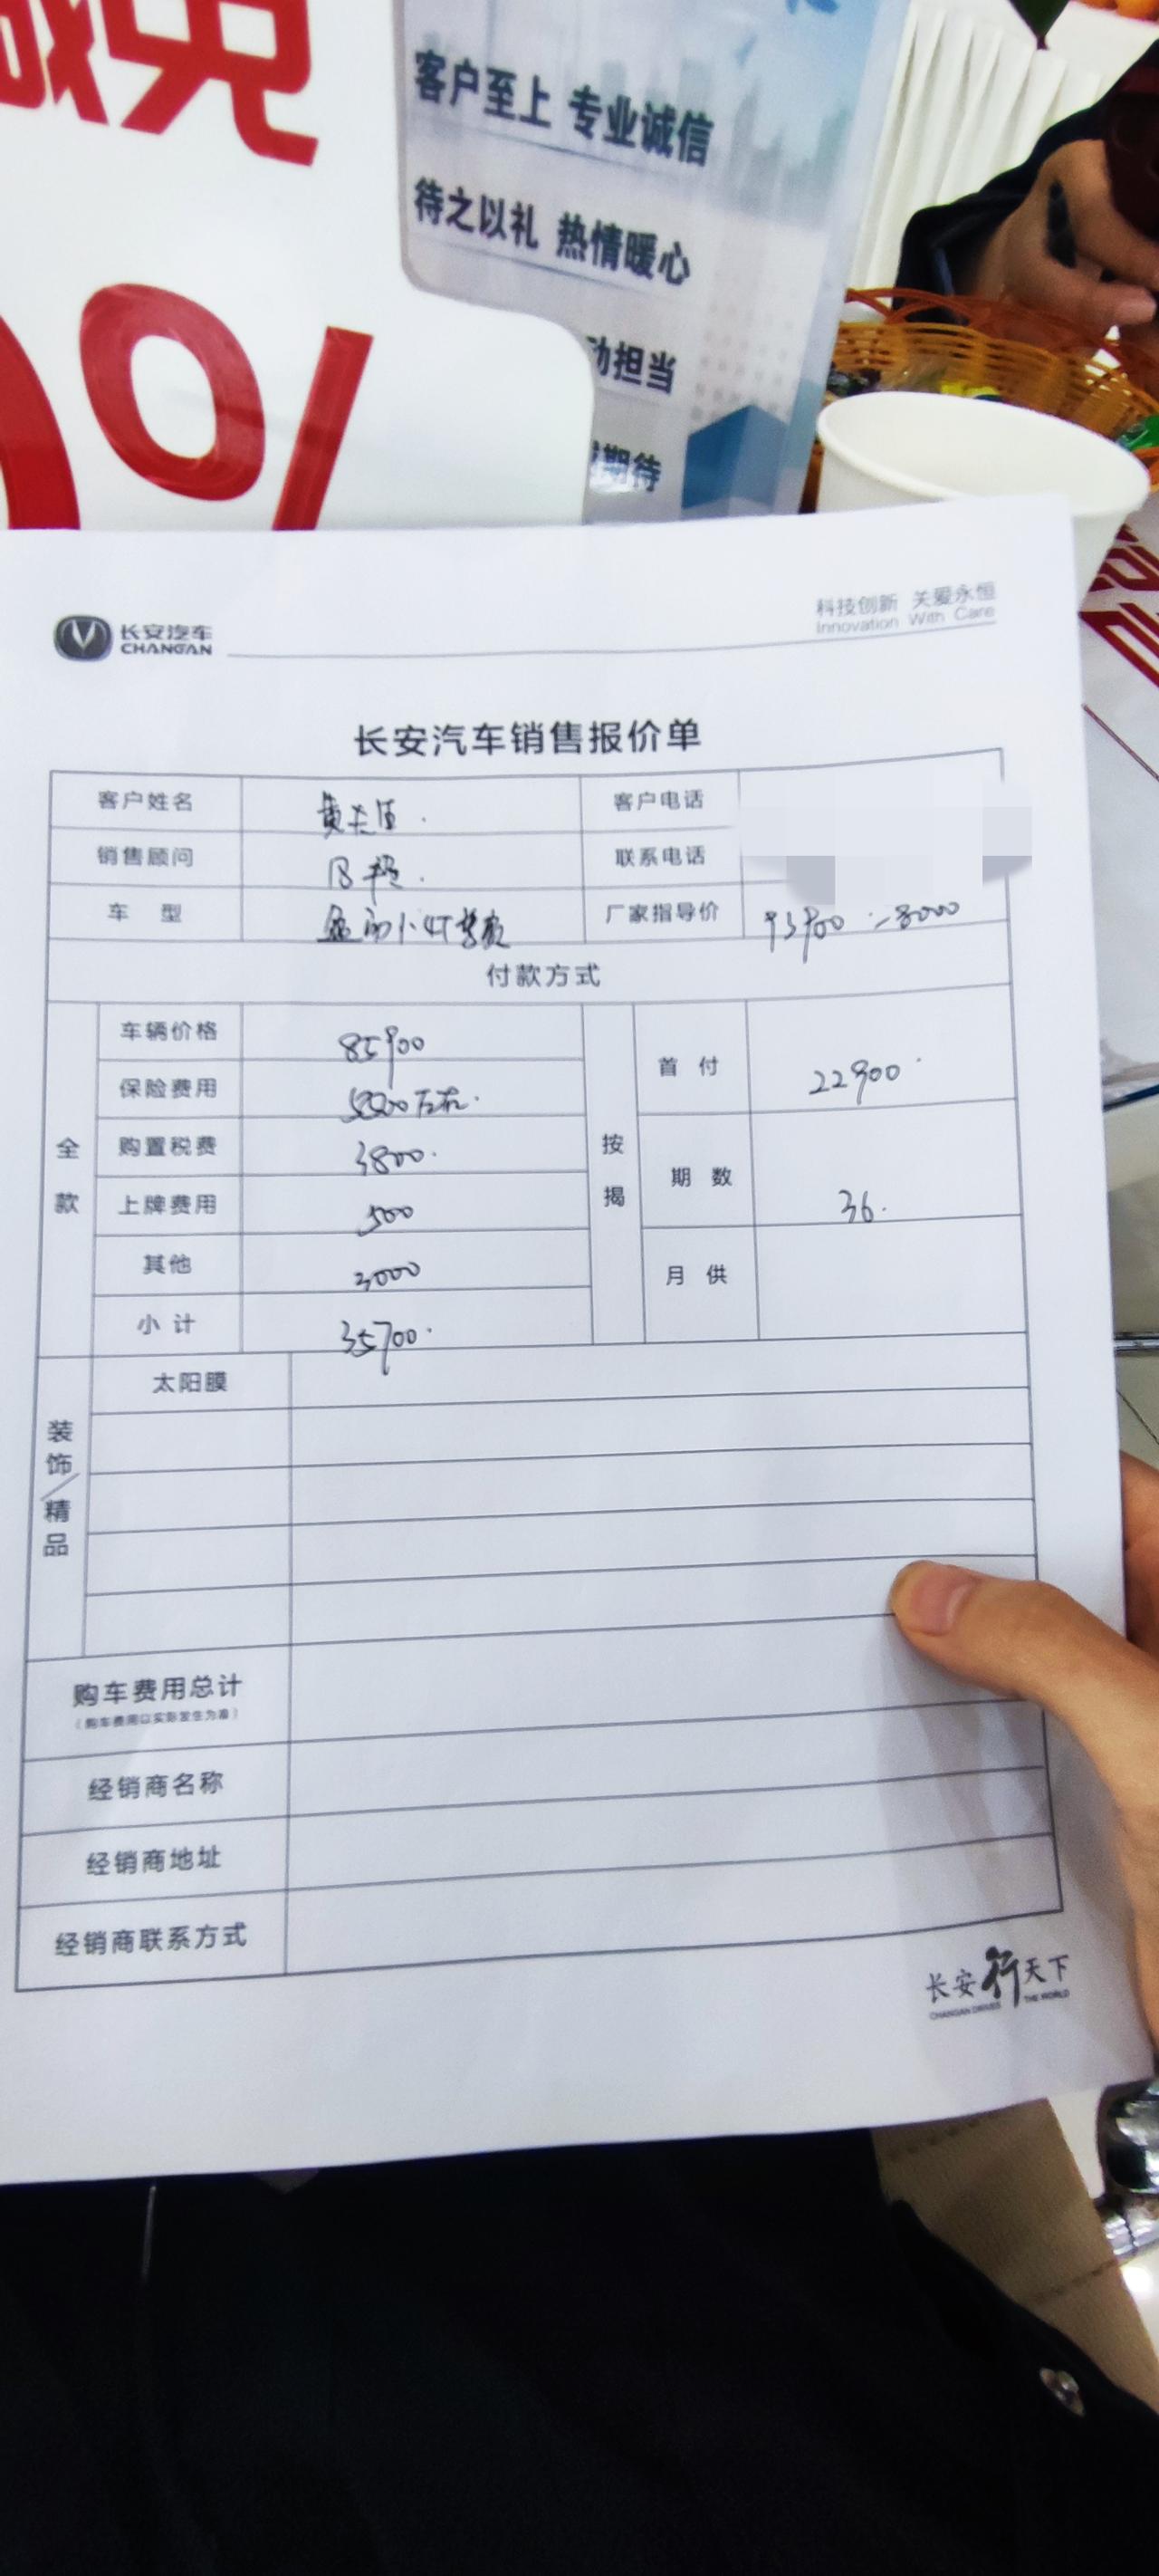 减免
0%
客户至上 专业诚信
待之以礼 热情暖心
动担当
期待
长安汽车
CHANGAN
科技创新 关爱永恒
Innovation With Care
长安汽车销售报价单
客户姓名 客户电话
销售顾问 联系电话
车 型 1.4T 厂家指导价 93900 -8000
付款方式
全款
车辆价格 85900
保险费用 5500左右.
购置税费 3800.
上牌费用 500
其他 3000
小计 35700.
按揭
首付 22900.
期数 36.
月供
装饰/精品
太阳膜
购车费用总计
(购车费用以实际发生为准)
经销商名称
经销商地址
经销商联系方式
长安行天下
CHANGAN DRIVES THE WORLD